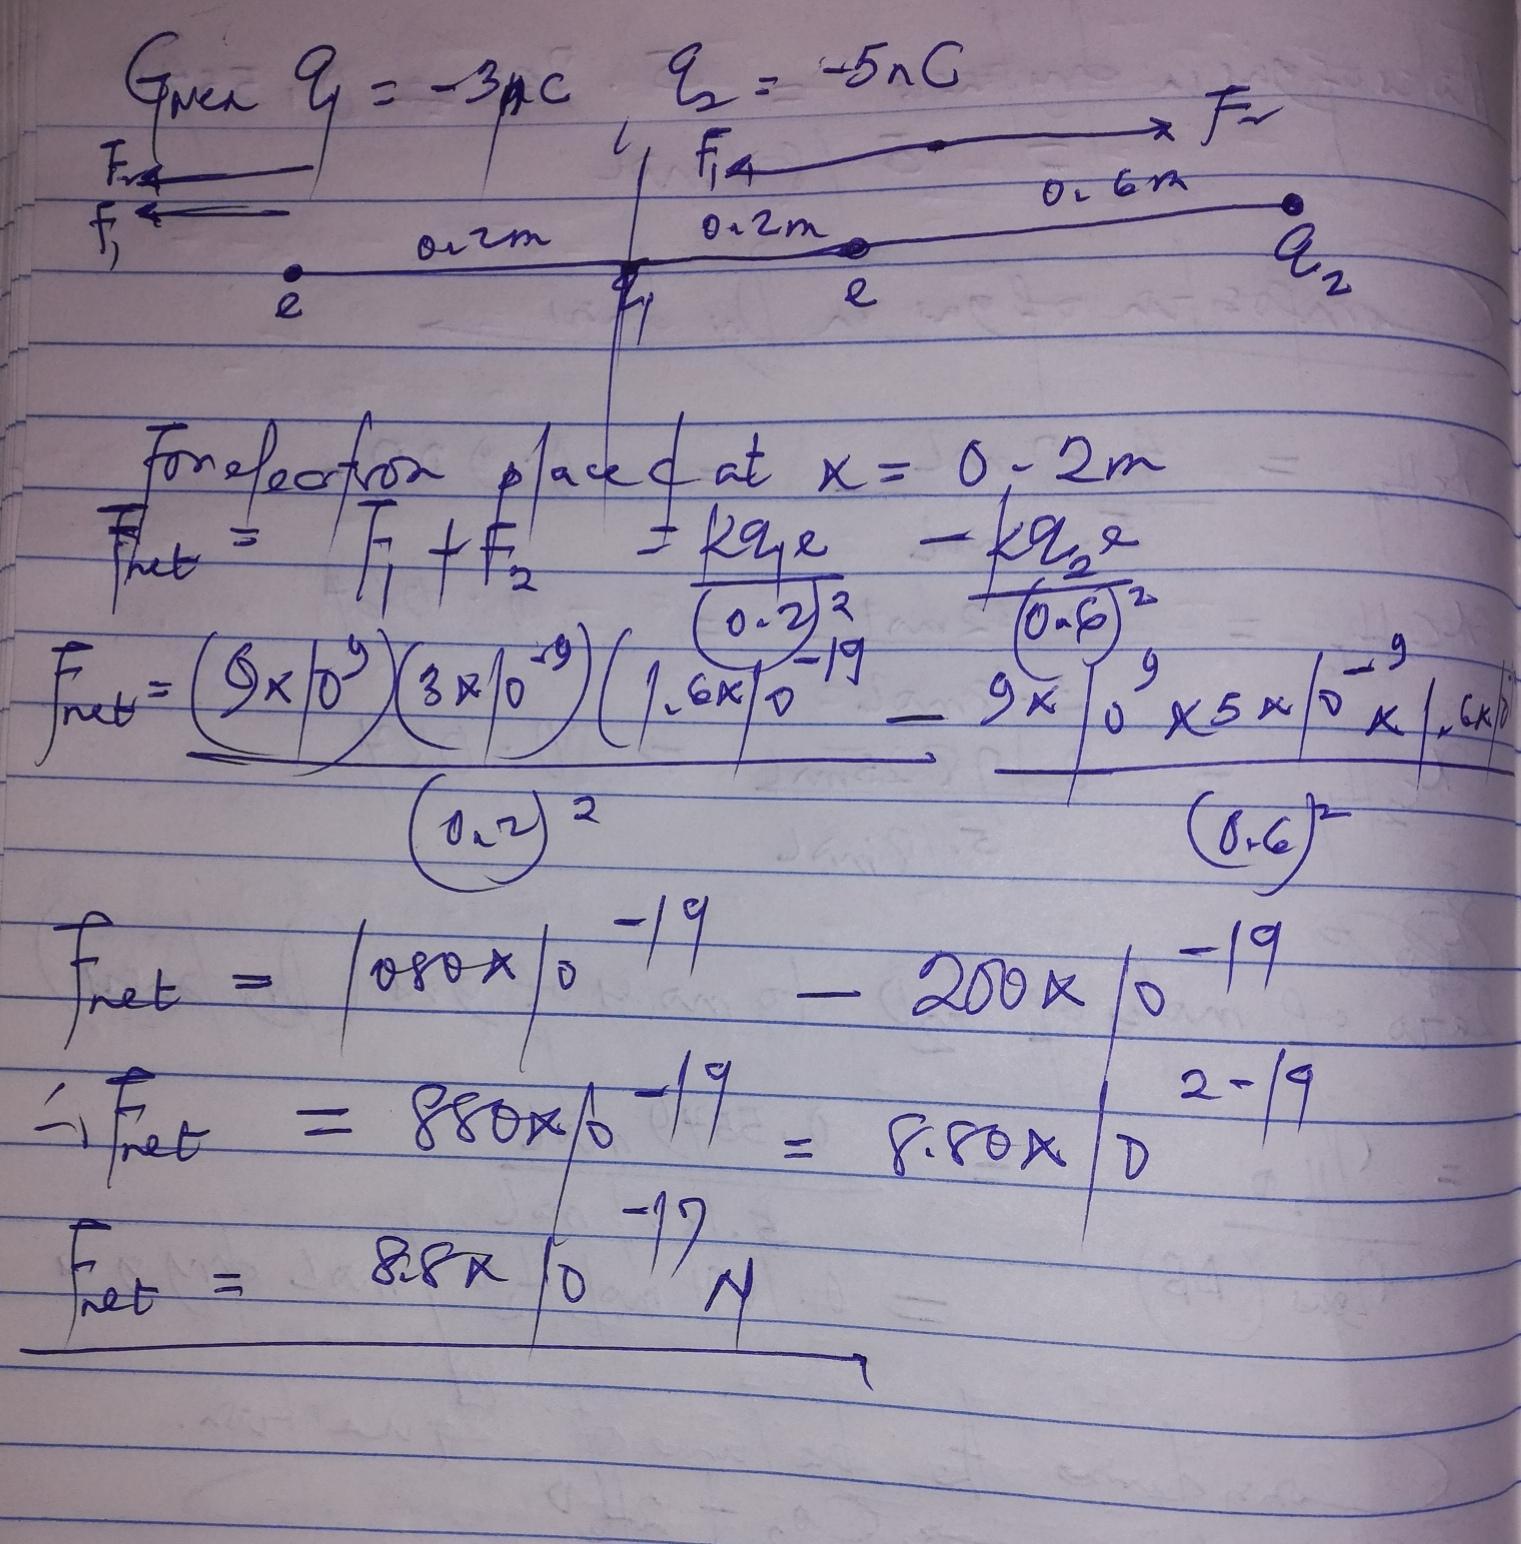 Given q₁ = -3nC q₂ = -5nC
F₂ F₁ F₂
F₁ 0.2m 0.2m 0.6m
e q₁ e q₂
For electron placed at x = 0.2m
Fnet = F₁ + F₂ = kq₁e/(0.2)² - kq₂e/(0.6)²
Fnet = (9x10⁹)(3x10⁻⁹)(1.6x10⁻¹⁹/(0.2)² - 9x10⁹x5x10⁻⁹x1.6x10/(0.6)²
Fnet = 1080x10⁻¹⁹ - 200x10⁻¹⁹
∴ Fnet = 880x10⁻¹⁹ = 8.80x10²⁻¹⁹
Fnet = 8.8x10⁻¹⁷N